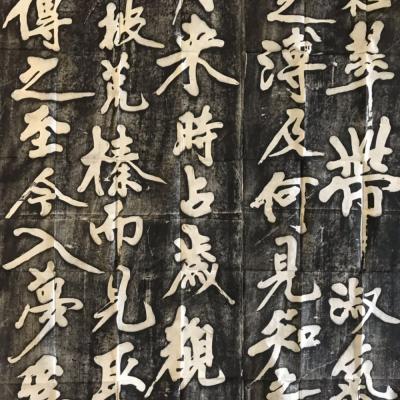 翠帶淑氣
之溥及何見知
来時占歲觀
披荒榛而見取
傳之至今入夢